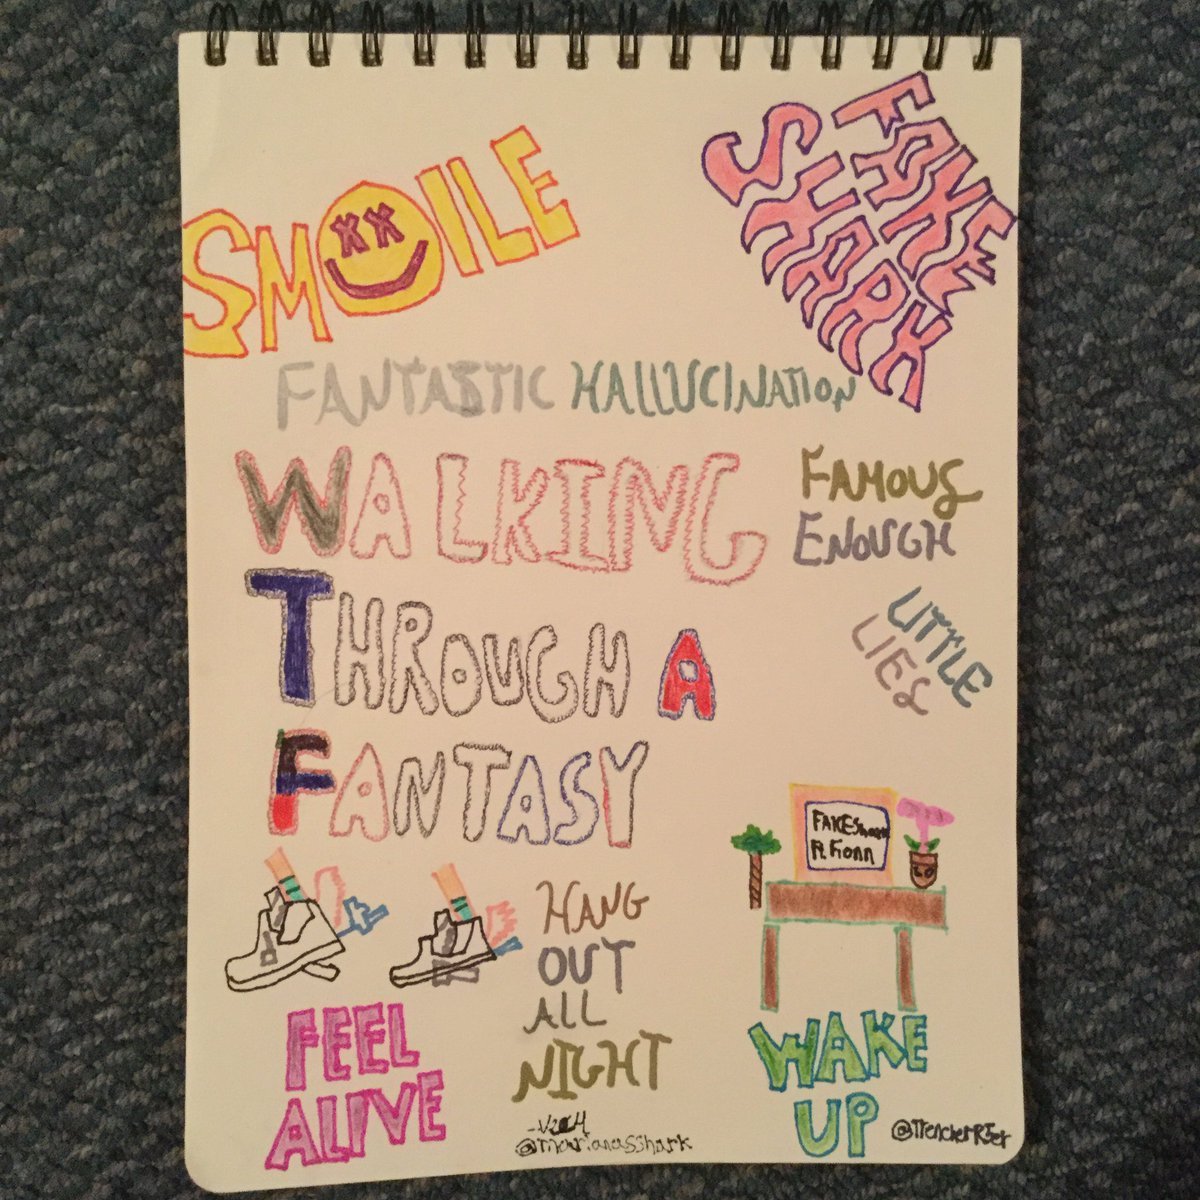 SMILE
FAKE
SHARK
FANTASTIC HALLUCINATION
WALKING
THROUGH A
FANTASY
FAMOUS
ENOUGH
LITTLE
LIES
FAKEShark
ft. Fionn
HANG
OUT
ALL
NIGHT
FEEL
ALIVE
WAKE
UP